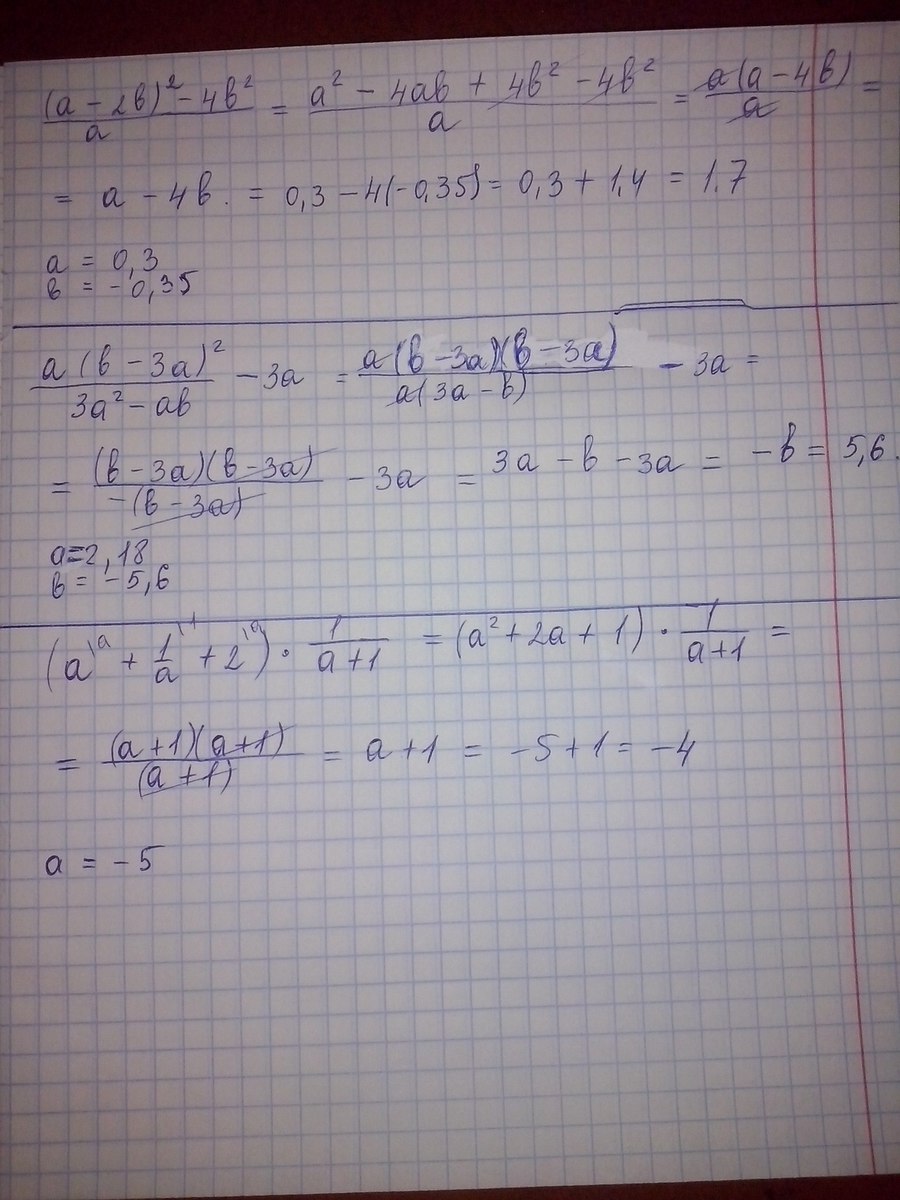 (a - 2b)² - 4b² / a = a² - 4ab + 4b² - 4b² / a = a(a - 4b) / a =
= a - 4b. = 0,3 - 4(-0,35) = 0,3 + 1,4 = 1.7
a = 0,3
b = -0,35
a (b - 3a)² / 3a² - ab - 3a = a(b - 3a)(b - 3a) / a(3a - b) - 3a =
= (b - 3a)(b - 3a) / -(b - 3a) - 3a = 3a - b - 3a = -b = 5,6.
a=2,18
b = -5,6
(a\a + 1/a\1 + 2\a) · 1 / a+1 = (a² + 2a + 1) · 1 / a+1 =
= (a+1)(a+1) / (a+1) = a+1 = -5+1 = -4
a = -5